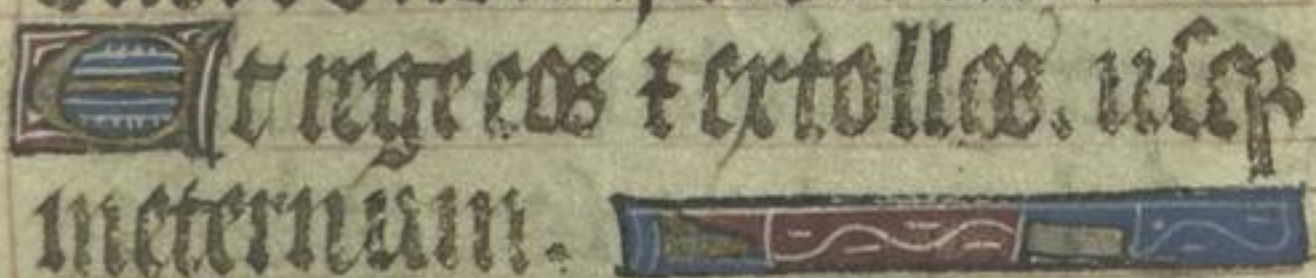 Et rege eos ⁊ extolleos. usqꝫ
ineternum.